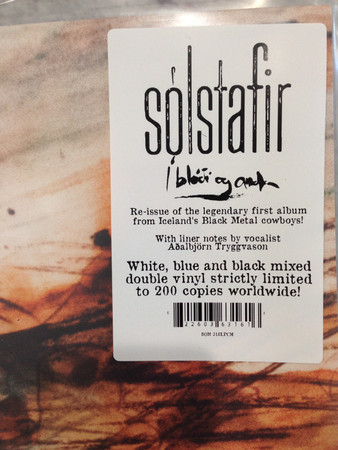 sólstafir
Í blóði og anda
Re-issue of the legendary first album
from Iceland's Black Metal cowboys!
With liner notes by vocalist
Aðalbjörn Tryggvason
White, blue and black mixed
double vinyl strictly limited
to 200 copies worldwide!
22603 63161